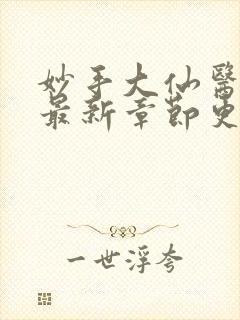 妙手大仙醫
最新章節更
一世浮夸